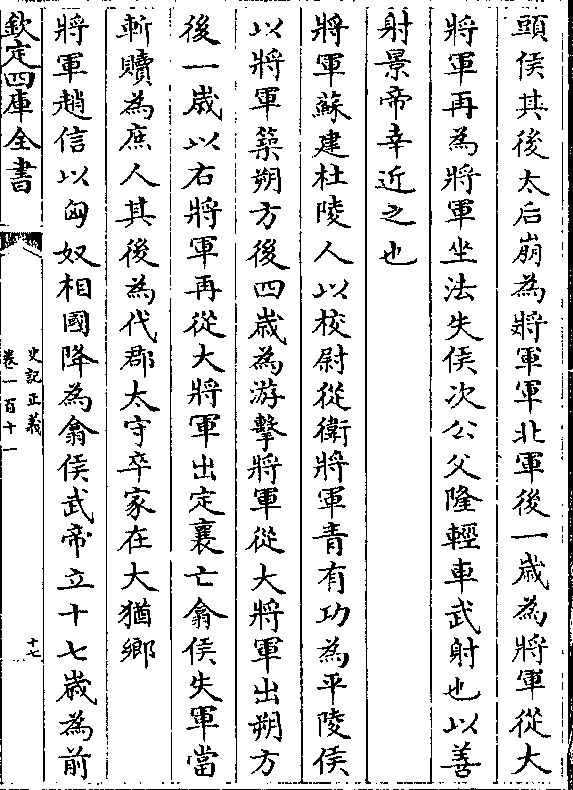 頭侯其後太后崩為將軍軍北軍後一歲為將軍從大
將軍再為將軍坐法失侯次公父隆輕車武射也以善
射景帝幸近之也
將軍蘇建杜陵人以校尉從衛將軍青有功為平陵侯
以將軍築朔方後四歲為游擊將軍從大將軍出朔方
後一歲以右將軍再從大將軍出定襄亡翕侯失軍當
斬贖為庶人其後為代郡太守卒冢在大猶鄉
將軍趙信以匈奴相國降為翕侯武帝立十七歲為前
欽定四庫全書
史記正義
卷一百十一
十七